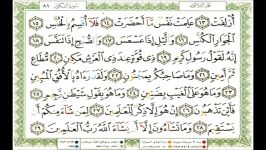 ٨١ سورة التكوير الجزء الثلاثون
أُزْلِفَتْ ١٣ عَلِمَتْ نَفْسٌ مَّآ أَحْضَرَتْ ١٤ فَلَآ أُقْسِمُ بِالْخُنَّسِ ١٥
الْجَوَارِ الْكُنَّسِ ١٦ وَالَّيْلِ إِذَا عَسْعَسَ ١٧ وَالصُّبْحِ إِذَا تَنَفَّسَ ١٨
إِنَّهُ لَقَوْلُ رَسُولٍ كَرِيمٍ ١٩ ذِي قُوَّةٍ عِندَ ذِي الْعَرْشِ مَكِينٍ ٢٠ مُّطَاعٍ
ثَمَّ أَمِينٍ ٢١ وَمَا صَاحِبُكُم بِمَجْنُونٍ ٢٢ وَلَقَدْ رَءَاهُ بِالْأُفُقِ
الْمُبِينِ ٢٣ وَمَا هُوَ عَلَى الْغَيْبِ بِضَنِينٍ ٢٤ وَمَا هُوَ بِقَوْلِ شَيْطَٰنٍ رَّجِيمٍ ٢٥
فَأَيْنَ تَذْهَبُونَ ٢٦ إِنْ هُوَ إِلَّا ذِكْرٌ لِّلْعَٰلَمِينَ ٢٧ لِمَن شَآءَ مِنكُمْ أَن
يَسْتَقِيمَ ٢٨ وَمَا تَشَآءُونَ إِلَّآ أَن يَشَآءَ اللَّهُ رَبُّ الْعَٰلَمِينَ ٢٩